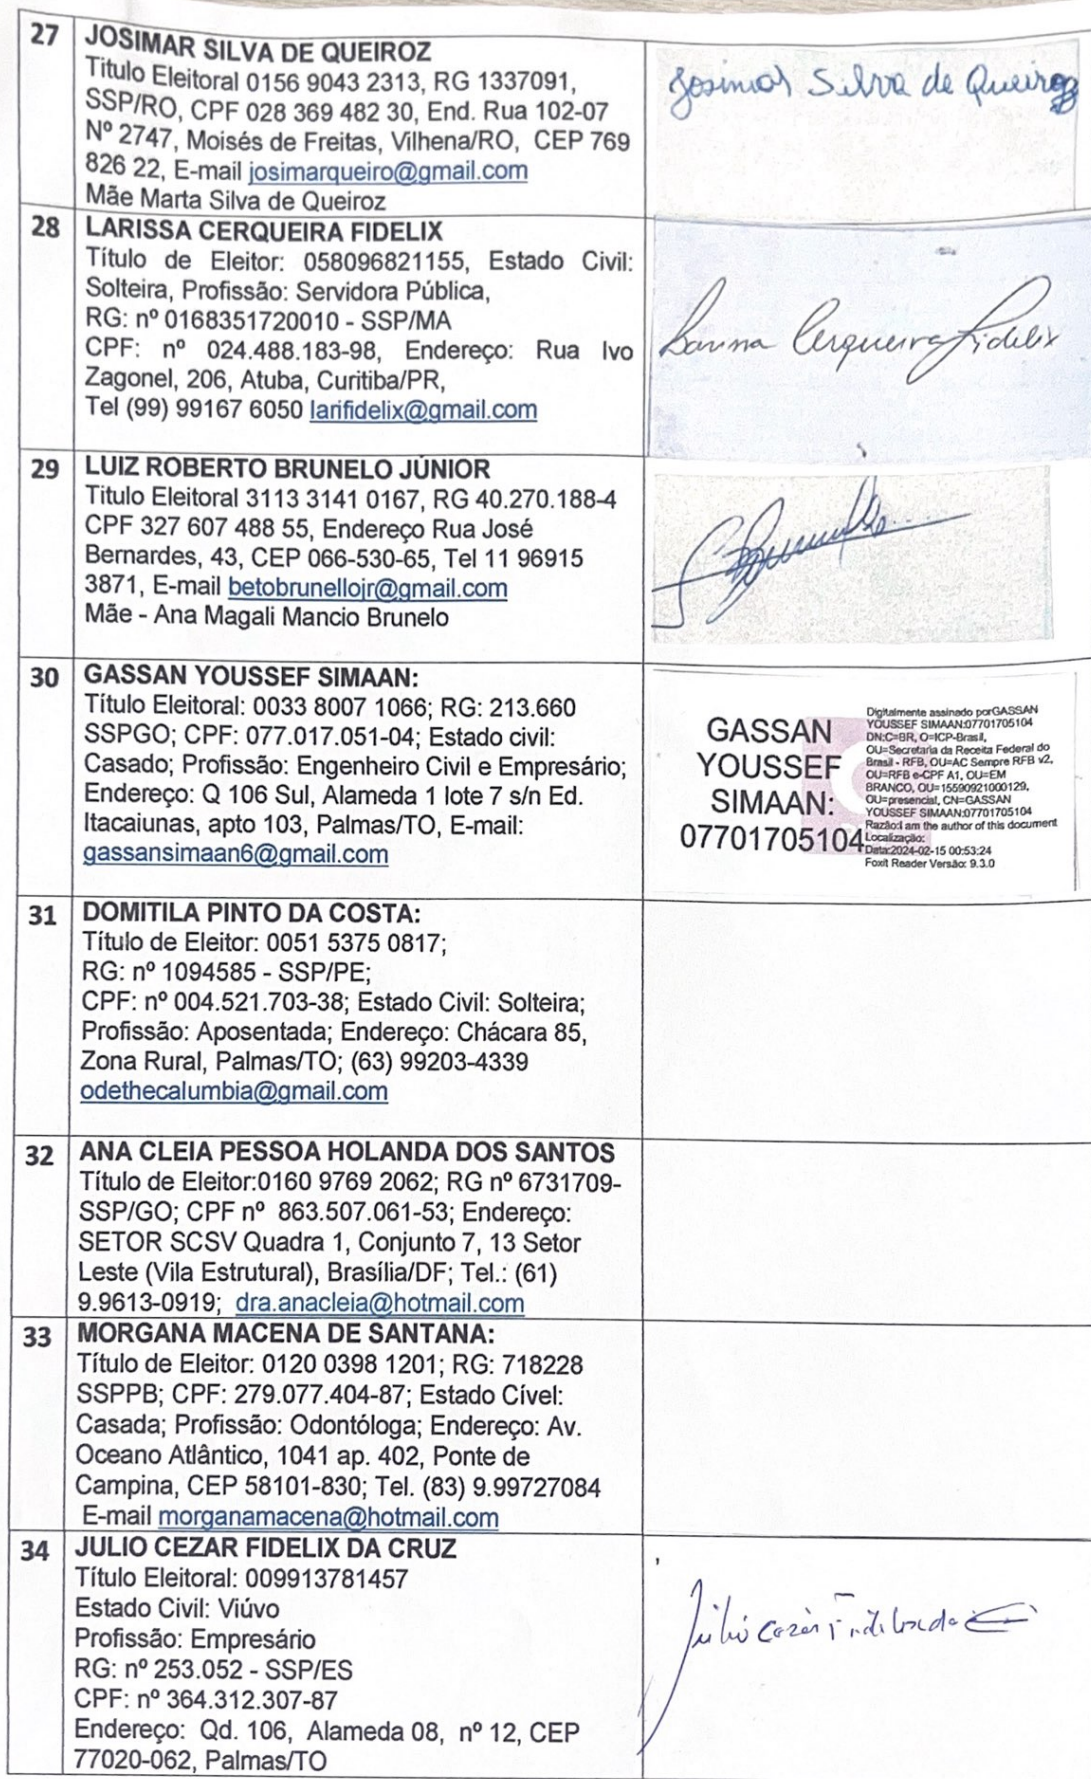 27
JOSIMAR SILVA DE QUEIROZ
Titulo Eleitoral 0156 9043 2313, RG 1337091,
SSP/RO, CPF 028 369 482 30, End. Rua 102-07
Nº 2747, Moisés de Freitas, Vilhena/RO, CEP 769
826 22, E-mail josimarqueiro@gmail.com
Mãe Marta Silva de Queiroz
Josimar Silva de Queiroz
28
LARISSA CERQUEIRA FIDELIX
Título de Eleitor: 058096821155, Estado Civil:
Solteira, Profissão: Servidora Pública,
RG: nº 0168351720010 - SSP/MA
CPF: nº 024.488.183-98, Endereço: Rua Ivo
Zagonel, 206, Atuba, Curitiba/PR,
Tel (99) 99167 6050 larifidelix@gmail.com
Larissa Cerqueira Fidelix
29
LUIZ ROBERTO BRUNELO JÚNIOR
Titulo Eleitoral 3113 3141 0167, RG 40.270.188-4
CPF 327 607 488 55, Endereço Rua José
Bernardes, 43, CEP 066-530-65, Tel 11 96915
3871, E-mail betobrunellojr@gmail.com
Mãe - Ana Magali Mancio Brunelo
30
GASSAN YOUSSEF SIMAAN:
Título Eleitoral: 0033 8007 1066; RG: 213.660
SSPGO; CPF: 077.017.051-04; Estado civil:
Casado; Profissão: Engenheiro Civil e Empresário;
Endereço: Q 106 Sul, Alameda 1 lote 7 s/n Ed.
Itacaiunas, apto 103, Palmas/TO, E-mail:
gassansimaan6@gmail.com
GASSAN
YOUSSEF
SIMAAN:
07701705104
Digitalmente assinado porGASSAN
YOUSSEF SIMAAN:07701705104
DN:C=BR, O=ICP-Brasil,
OU=Secretaria da Receita Federal do
Brasil - RFB, OU=AC Sempre RFB v2,
OU=RFB e-CPF A1, OU=EM
BRANCO, OU=15590921000129,
OU=presencial, CN=GASSAN
YOUSSEF SIMAAN:07701705104
Razão:I am the author of this document
Localização:
Data:2024-02-15 00:53:24
Foxit Reader Versão: 9.3.0
31
DOMITILA PINTO DA COSTA:
Título de Eleitor: 0051 5375 0817;
RG: nº 1094585 - SSP/PE;
CPF: nº 004.521.703-38; Estado Civil: Solteira;
Profissão: Aposentada; Endereço: Chácara 85,
Zona Rural, Palmas/TO; (63) 99203-4339
odethecalumbia@gmail.com
32
ANA CLEIA PESSOA HOLANDA DOS SANTOS
Título de Eleitor:0160 9769 2062; RG nº 6731709-
SSP/GO; CPF nº 863.507.061-53; Endereço:
SETOR SCSV Quadra 1, Conjunto 7, 13 Setor
Leste (Vila Estrutural), Brasília/DF; Tel.: (61)
9.9613-0919; dra.anacleia@hotmail.com
33
MORGANA MACENA DE SANTANA:
Título de Eleitor: 0120 0398 1201; RG: 718228
SSPPB; CPF: 279.077.404-87; Estado Cível:
Casada; Profissão: Odontóloga; Endereço: Av.
Oceano Atlântico, 1041 ap. 402, Ponte de
Campina, CEP 58101-830; Tel. (83) 9.99727084
E-mail morganamacena@hotmail.com
34
JULIO CEZAR FIDELIX DA CRUZ
Título Eleitoral: 009913781457
Estado Civil: Viúvo
Profissão: Empresário
RG: nº 253.052 - SSP/ES
CPF: nº 364.312.307-87
Endereço: Qd. 106, Alameda 08, nº 12, CEP
77020-062, Palmas/TO